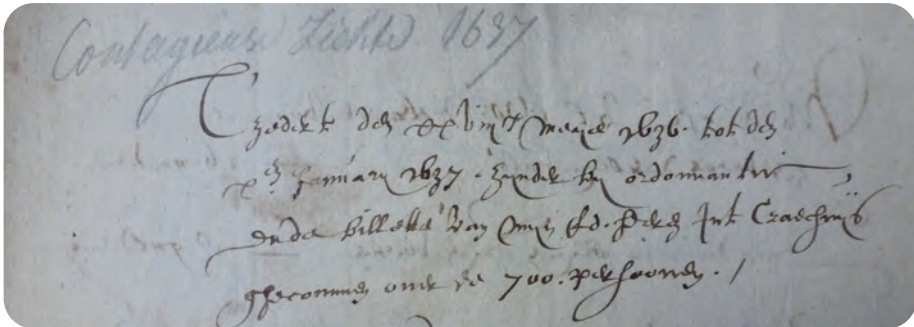 Contagieuse Ziekte 1637
Tzedert den xxviijen meye 1636. tot den
xen January 1637. zynder by ordonnantie
ende billetten van myn Ed. heren Int Craechuijs
ghecommen over de 700. persoonen. /